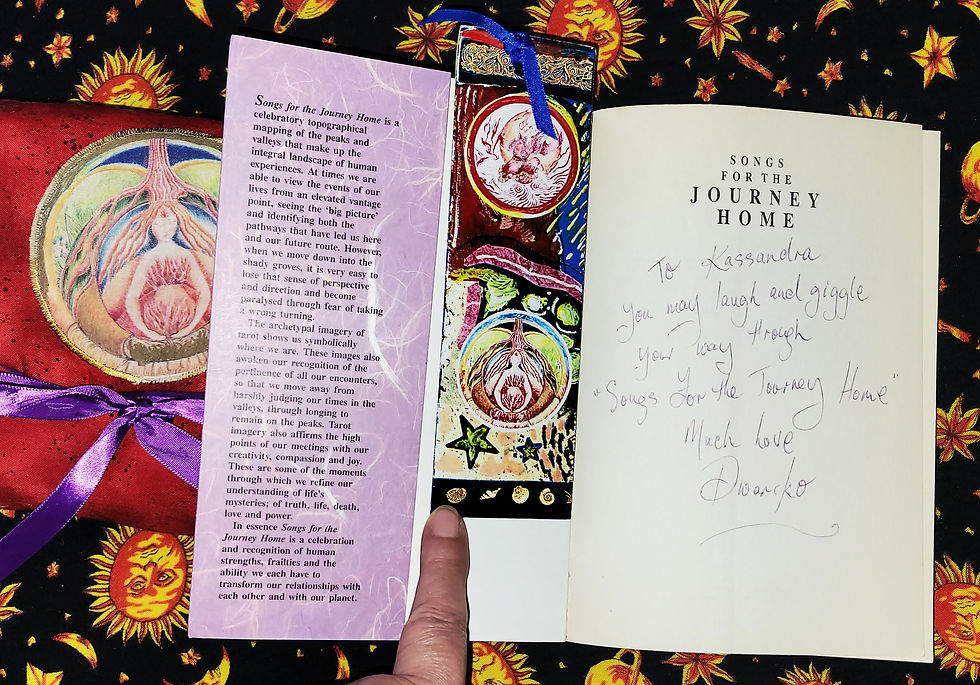 Songs for the Journey Home is a
celebratory topographical
mapping of the peaks and
valleys that make up the
integral landscape of human
experiences. At times we are
able to view the events of our
lives from an elevated vantage
point, seeing the 'big picture'
and identifying both the
pathways that have led us here
and our future route. However,
when we move down into the
shady groves, it is very easy to
lose that sense of perspective
and direction and become
paralysed through fear of taking
a wrong turning.
The archetypal imagery of
tarot shows us symbolically
where we are. These images also
awaken our recognition of the
pertinence of all our encounters,
so that we move away from
harshly judging our times in the
valleys, through longing to
remain on the peaks. Tarot
imagery also affirms the high
points of our meetings with our
creativity, compassion and joy.
These are some of the moments
through which we refine our
understanding of life's
mysteries; of truth, life, death,
love and power.
In essence Songs for the
Journey Home is a celebration
and recognition of human
strengths, frailties and the
ability we each have to
transform our relationships with
each other and with our planet.
SONGS
FOR THE
JOURNEY
HOME
To Kassandra
you may laugh and giggle
your way through
"Songs for the Journey Home"
Much love